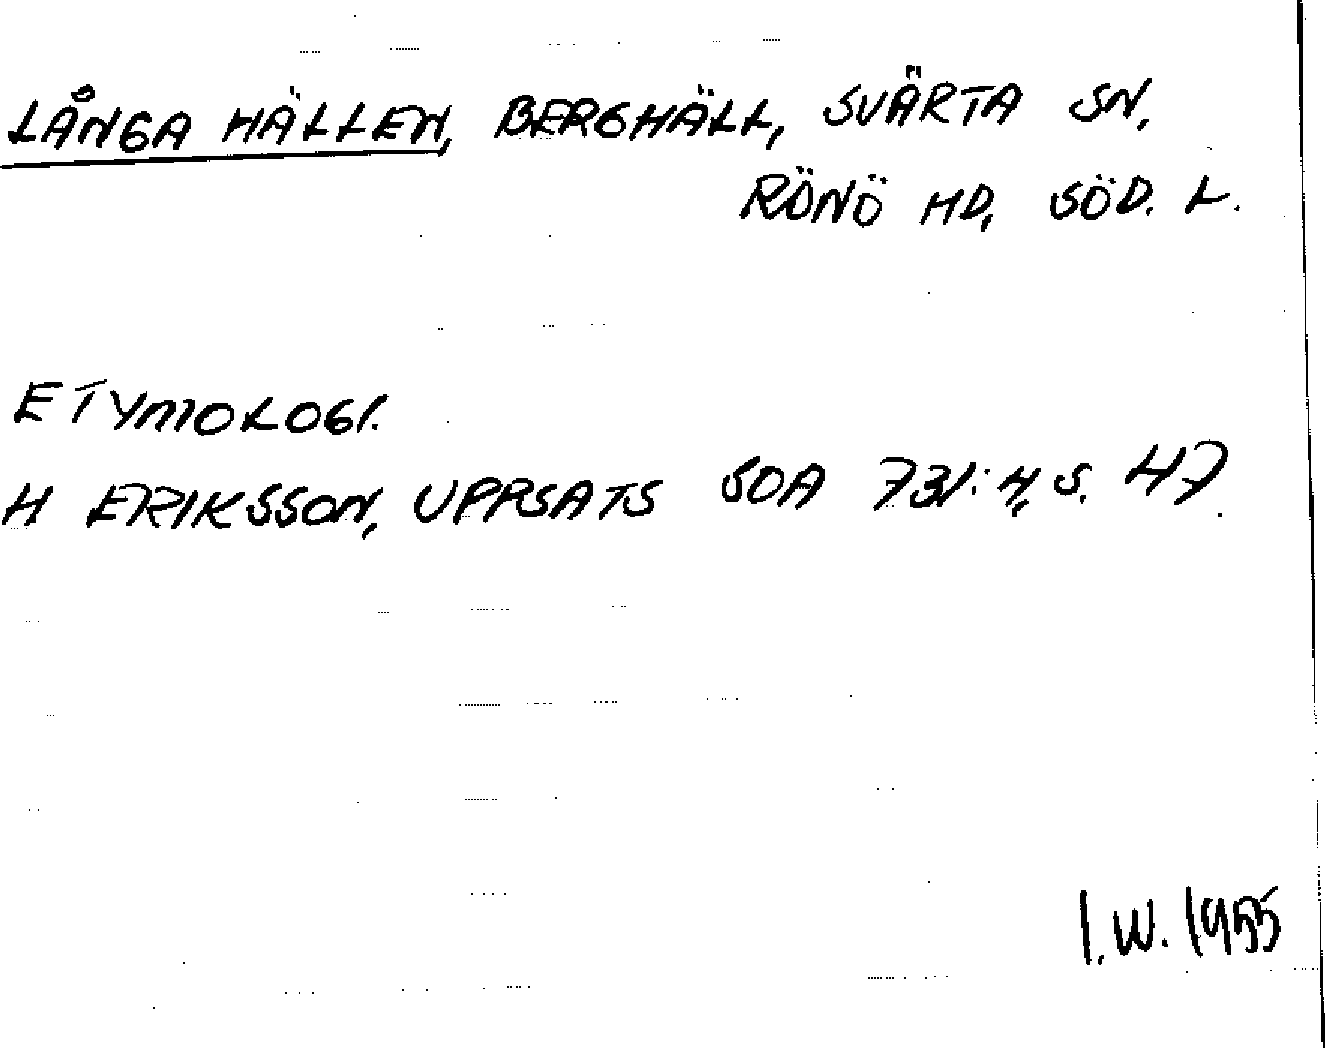 LÅNGA HÄLLEN, BERGHÄLL, SVÄRTA SN,
RÖNÖ HD, SÖD. L.
ETYMOLOGI.
H ERIKSSON, UPPSATS SOA 731:4, S. 47.
I.W. 1955